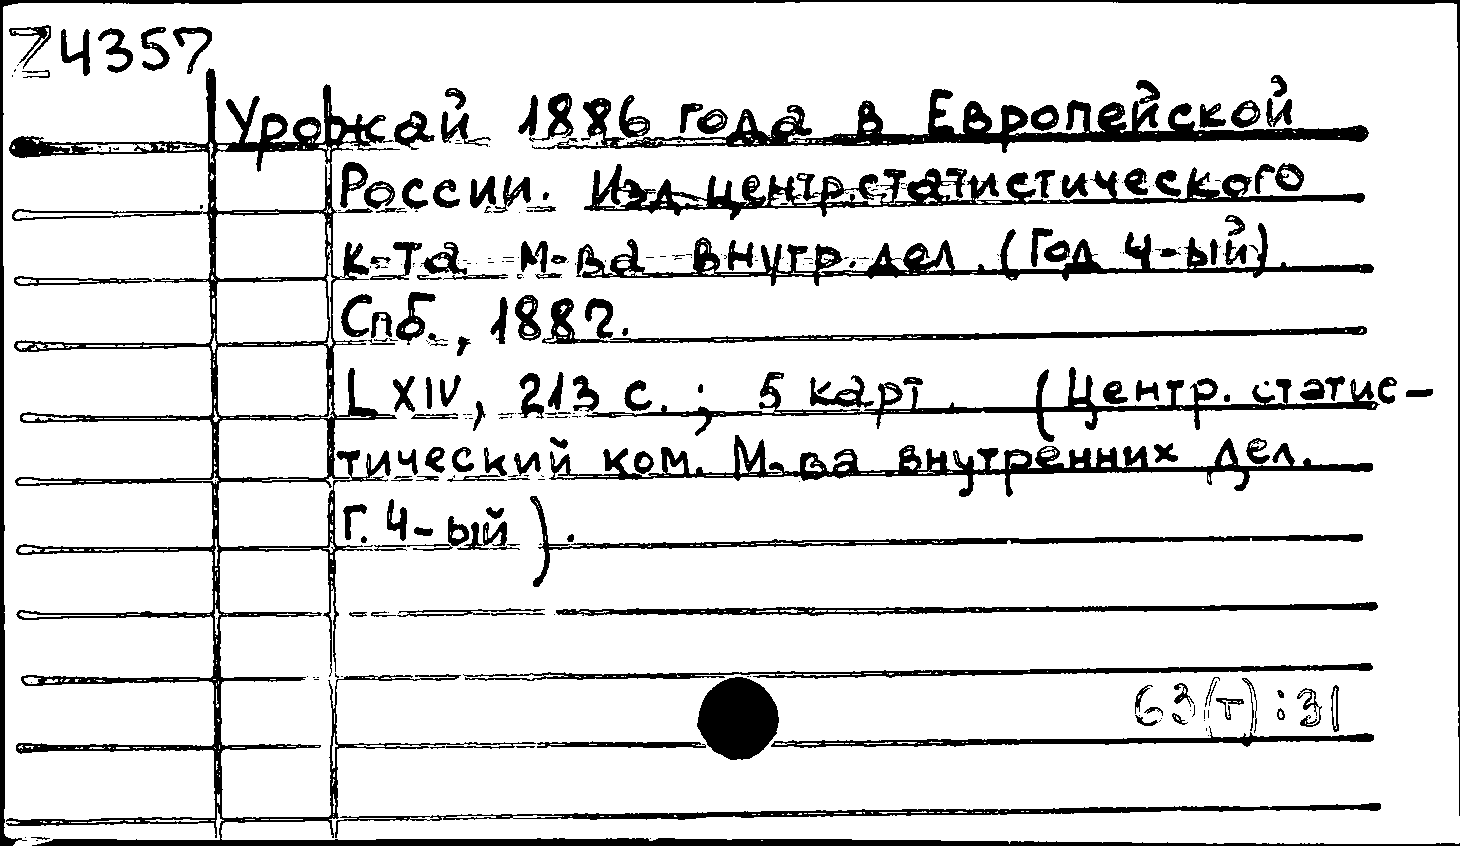 Z4357
Урожай 1886 года в Европейской
России. Изд. центр. статистического
к-та м-ва внутр. дел. (Год 4-ый).
Спб., 1887.
LXIV, 213 с.; 5 карт. (Центр. статис-
тический ком. М-ва внутренних дел.
Г. 4-ый).
63(т):31